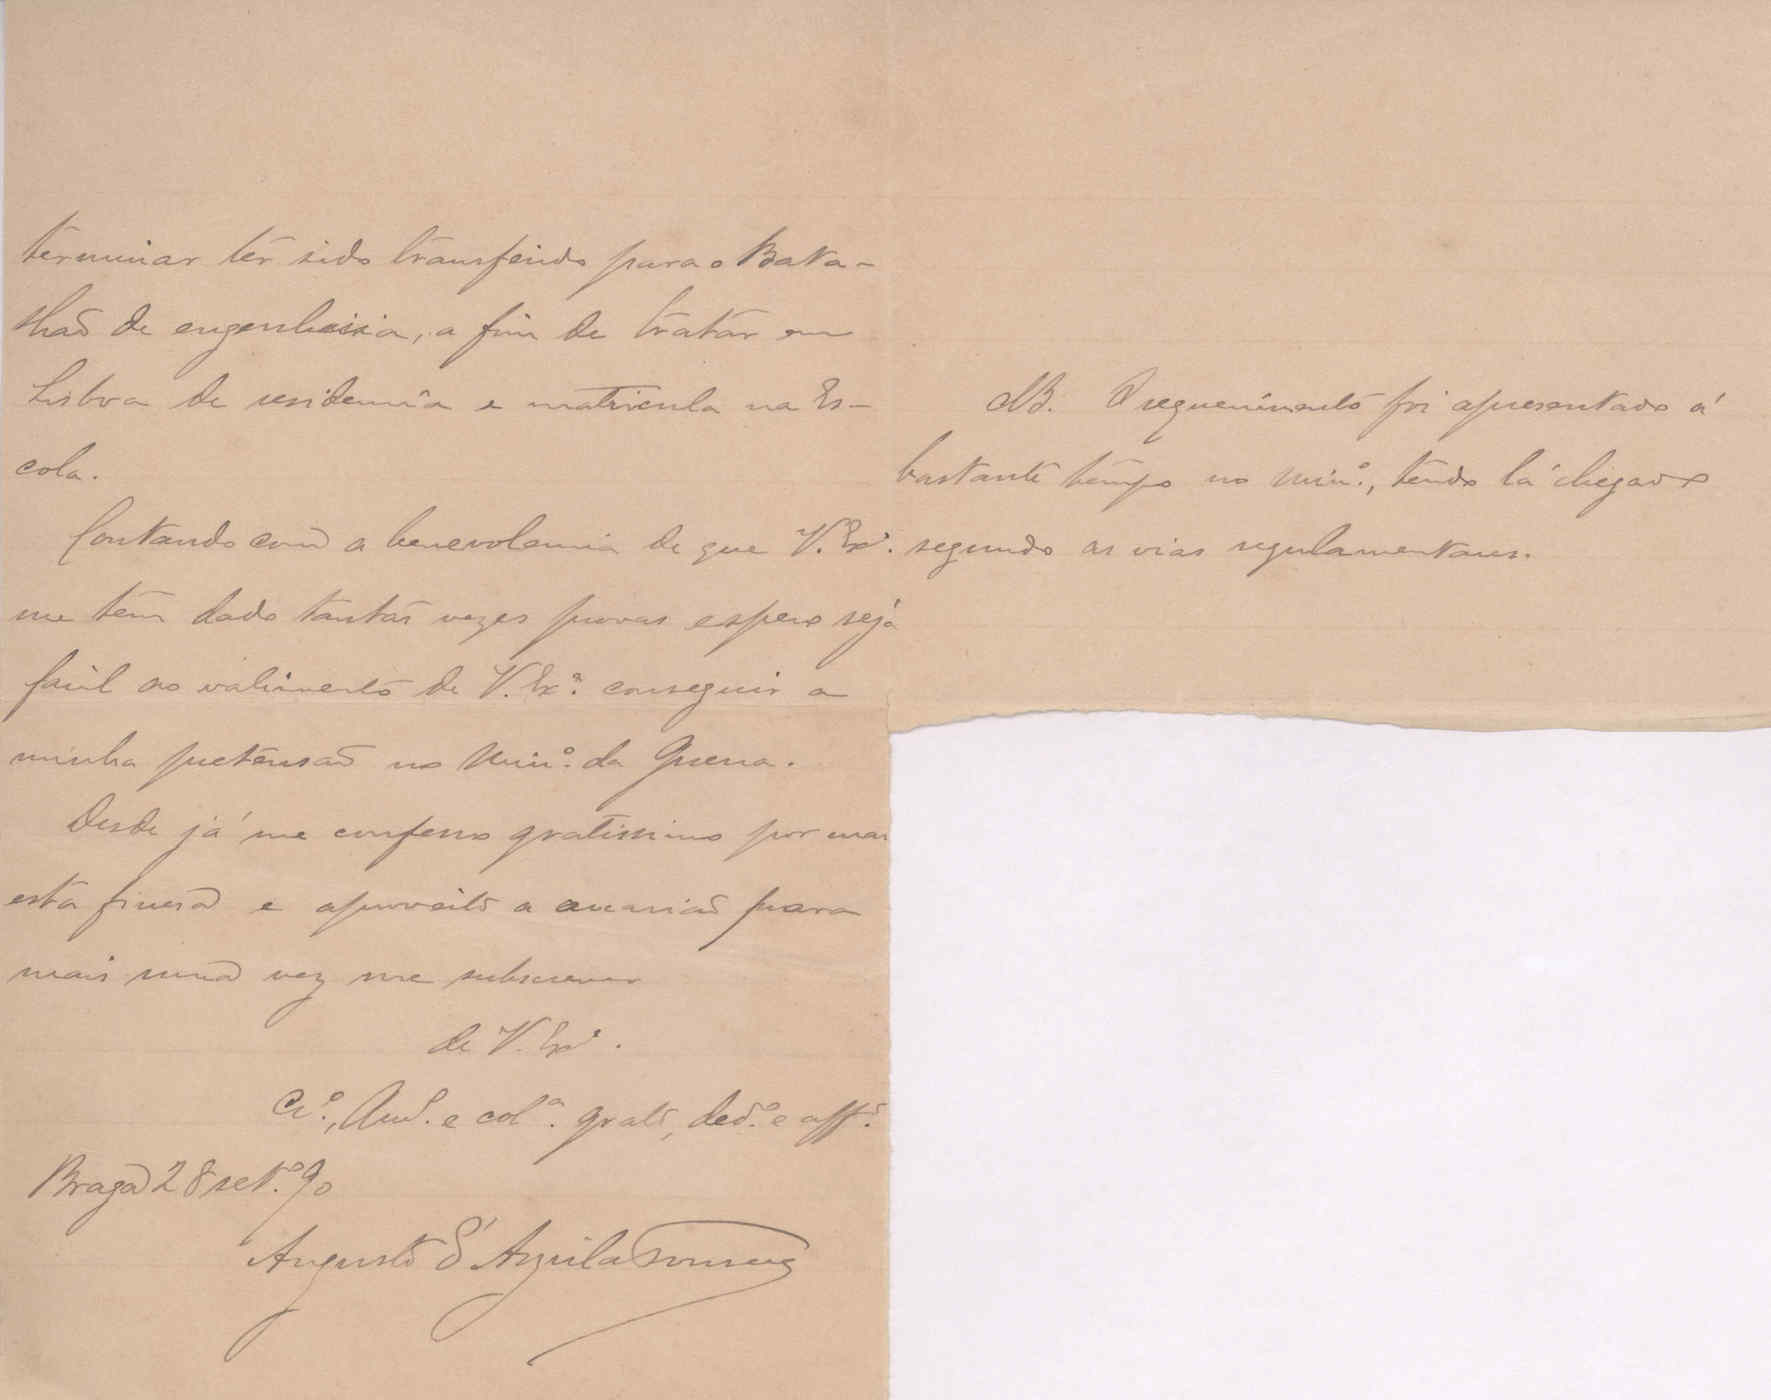 terminar ter sido transferido para o Bata-
lhaõ de engenharia, a fim de tratar em
Lisboa de residencia e matricula na Es-
cola.
Contando com a benevolencia de que V. Exª.
me tem dado tantas vezes provas espero seja
facil ao valimento de V. Exª. conseguir a
minha pretensaõ no Minº. da Guerra.
Desde já me confesso gratissimo por mais
esta fineza e aproveito a occasiaõ para
mais uma vez me subscrever
de V. Exª.
Crº., Amº. e colª. grato, dedº. e affº.
Braga 28 setº. 90
Augusto d'Aguila
NB. O requerimento foi apresentado á
bastante tempo no Minº., tendo lá chegado
segundo as vias regulamentares.